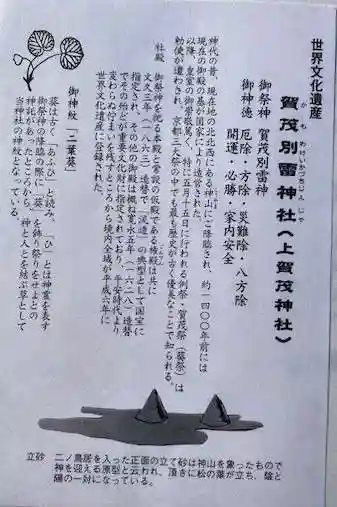 世界文化遺産
賀茂別雷神社(上賀茂神社)
かもわけいかづちじんじゃ
御祭神 賀茂別雷神
御神徳 厄除・方除・災難除・八方除
開運・必勝・家内安全
神代の昔、現在地の北北西にある神山にご降臨され、約一四〇〇年前には
現在の御殿の基が国家により造営された。
以降、皇室の御崇敬篤く、特に五月十五日に行われる例祭・賀茂祭(葵祭)は
勅使が遣わされ、京都三大祭の中でも最も歴史が古く優美なことで知られる。
社殿
御祭神を祀る本殿と常設の仮殿である権殿は共に
文久三年(一八六三)造替で「流造」の典型として国宝に
指定され、その他の御殿は概ね寛永五年(一六二八)造替
でその殆どが重要文化財に指定されており、平安時代より
変わらぬ佇まいを残すところから境内全域が平成六年に
世界文化遺産に登録された。
御神紋「二葉葵」
葵は古く「あふひ」と読み、「ひ」とは神霊を表す
御祭神の降臨の際に「葵」を飾り祭りをせよとの
神託があったところから、神と人とを結ぶ草として
当神社の神紋となっている。
立砂
二ノ鳥居を入った正面の立て砂は神山を象ったもので
神を迎える原型と云われ、頂きに松の葉が立ち、陰
陽の一対になっている。